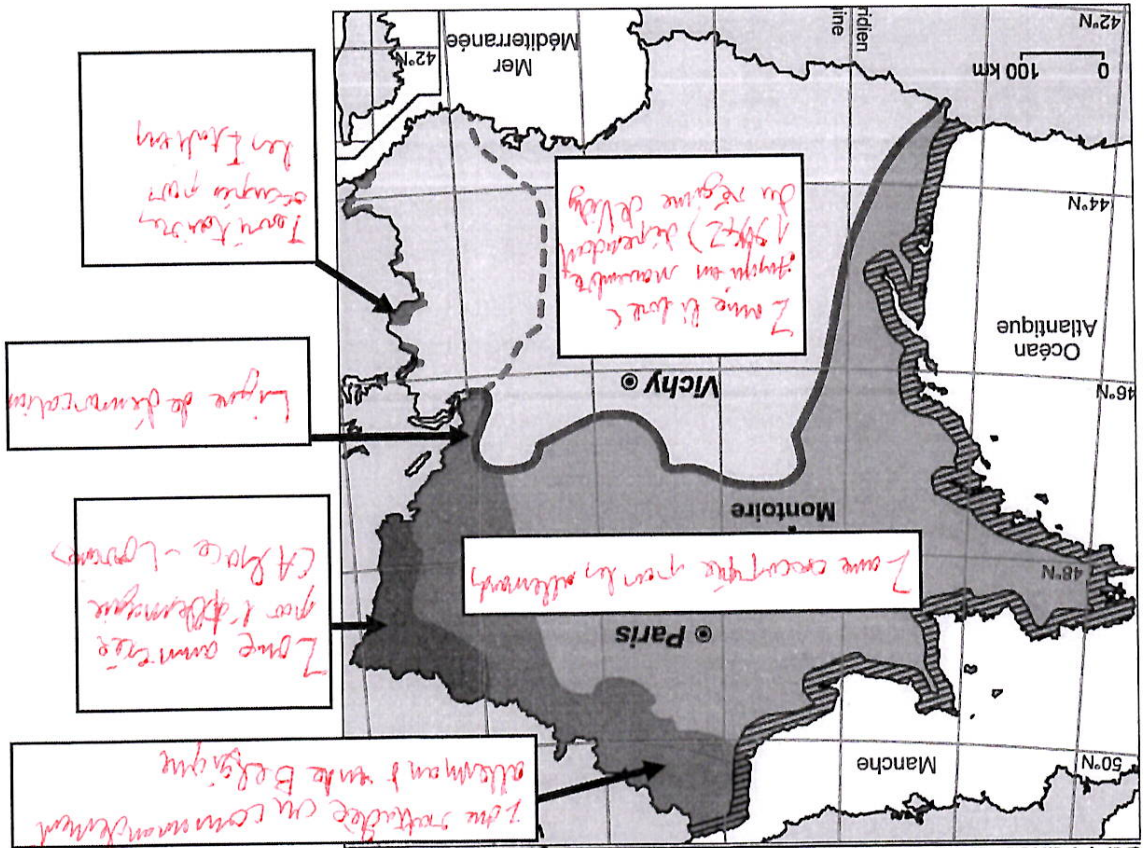 50°N
Manche
zone rattachée au commandement
allemand de Belgique
Paris
Zone annexée
par l'Allemagne
(Alsace-Lorraine)
Zone occupée par les allemands
48°N
Montoire
Ligne de démarcation
46°N
Vichy
Océan
Atlantique
Zone libre (
jusqu'en novembre
1942) dépendant
du régime de Vichy
Territoires
occupés par
les Italiens
44°N
Mer
Méditerranée
42°N
0 100 km
ridien
gine
42°N